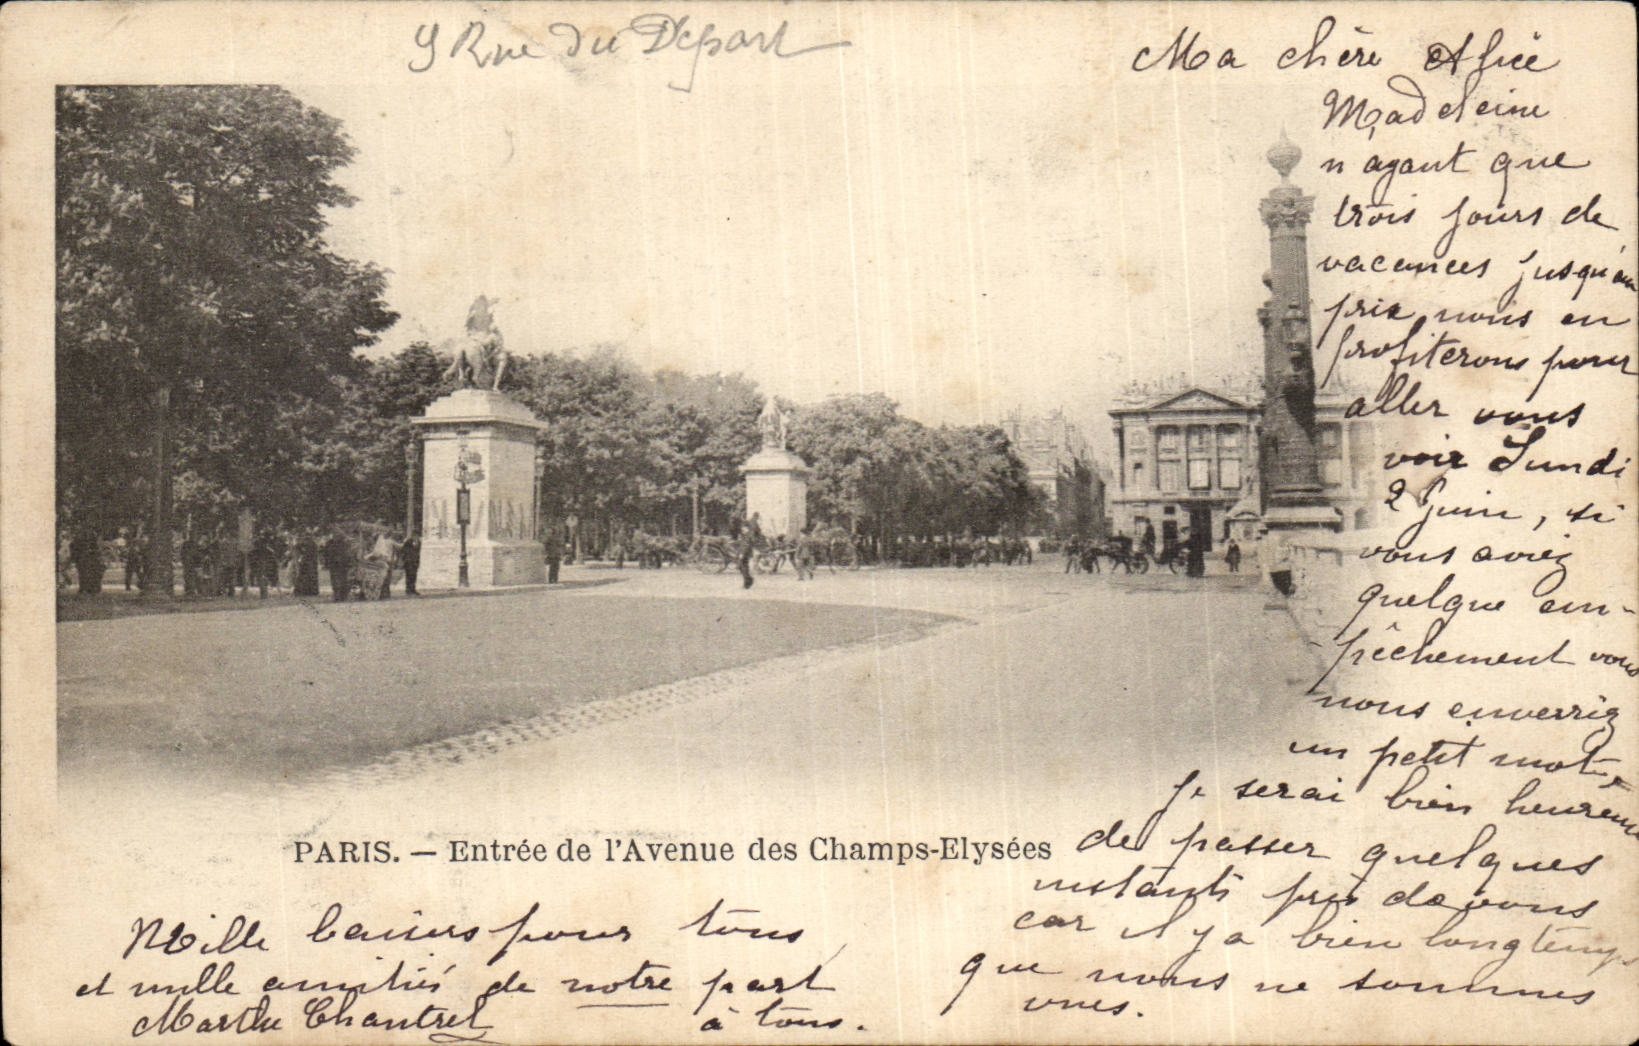 9 Rue du Départ
Ma chère Alice
Madeleine
n'ayant que
trois jours de
vacances jusqu'au
prix nous en
profiterons pour
aller vous
voir Lundi
2 Juin, si
vous aviez
quelque em-
pêchement vous
nous enverriez
un petit mot,
Je serai bien heureuse
de passer quelques
instants près de vous
car il y a bien longtemps
que nous ne sommes
vues.
PARIS. — Entrée de l'Avenue des Champs-Elysées
Mille baisers pour tous,
et mille amitiés de notre part
Marthe Chantrel à tous.